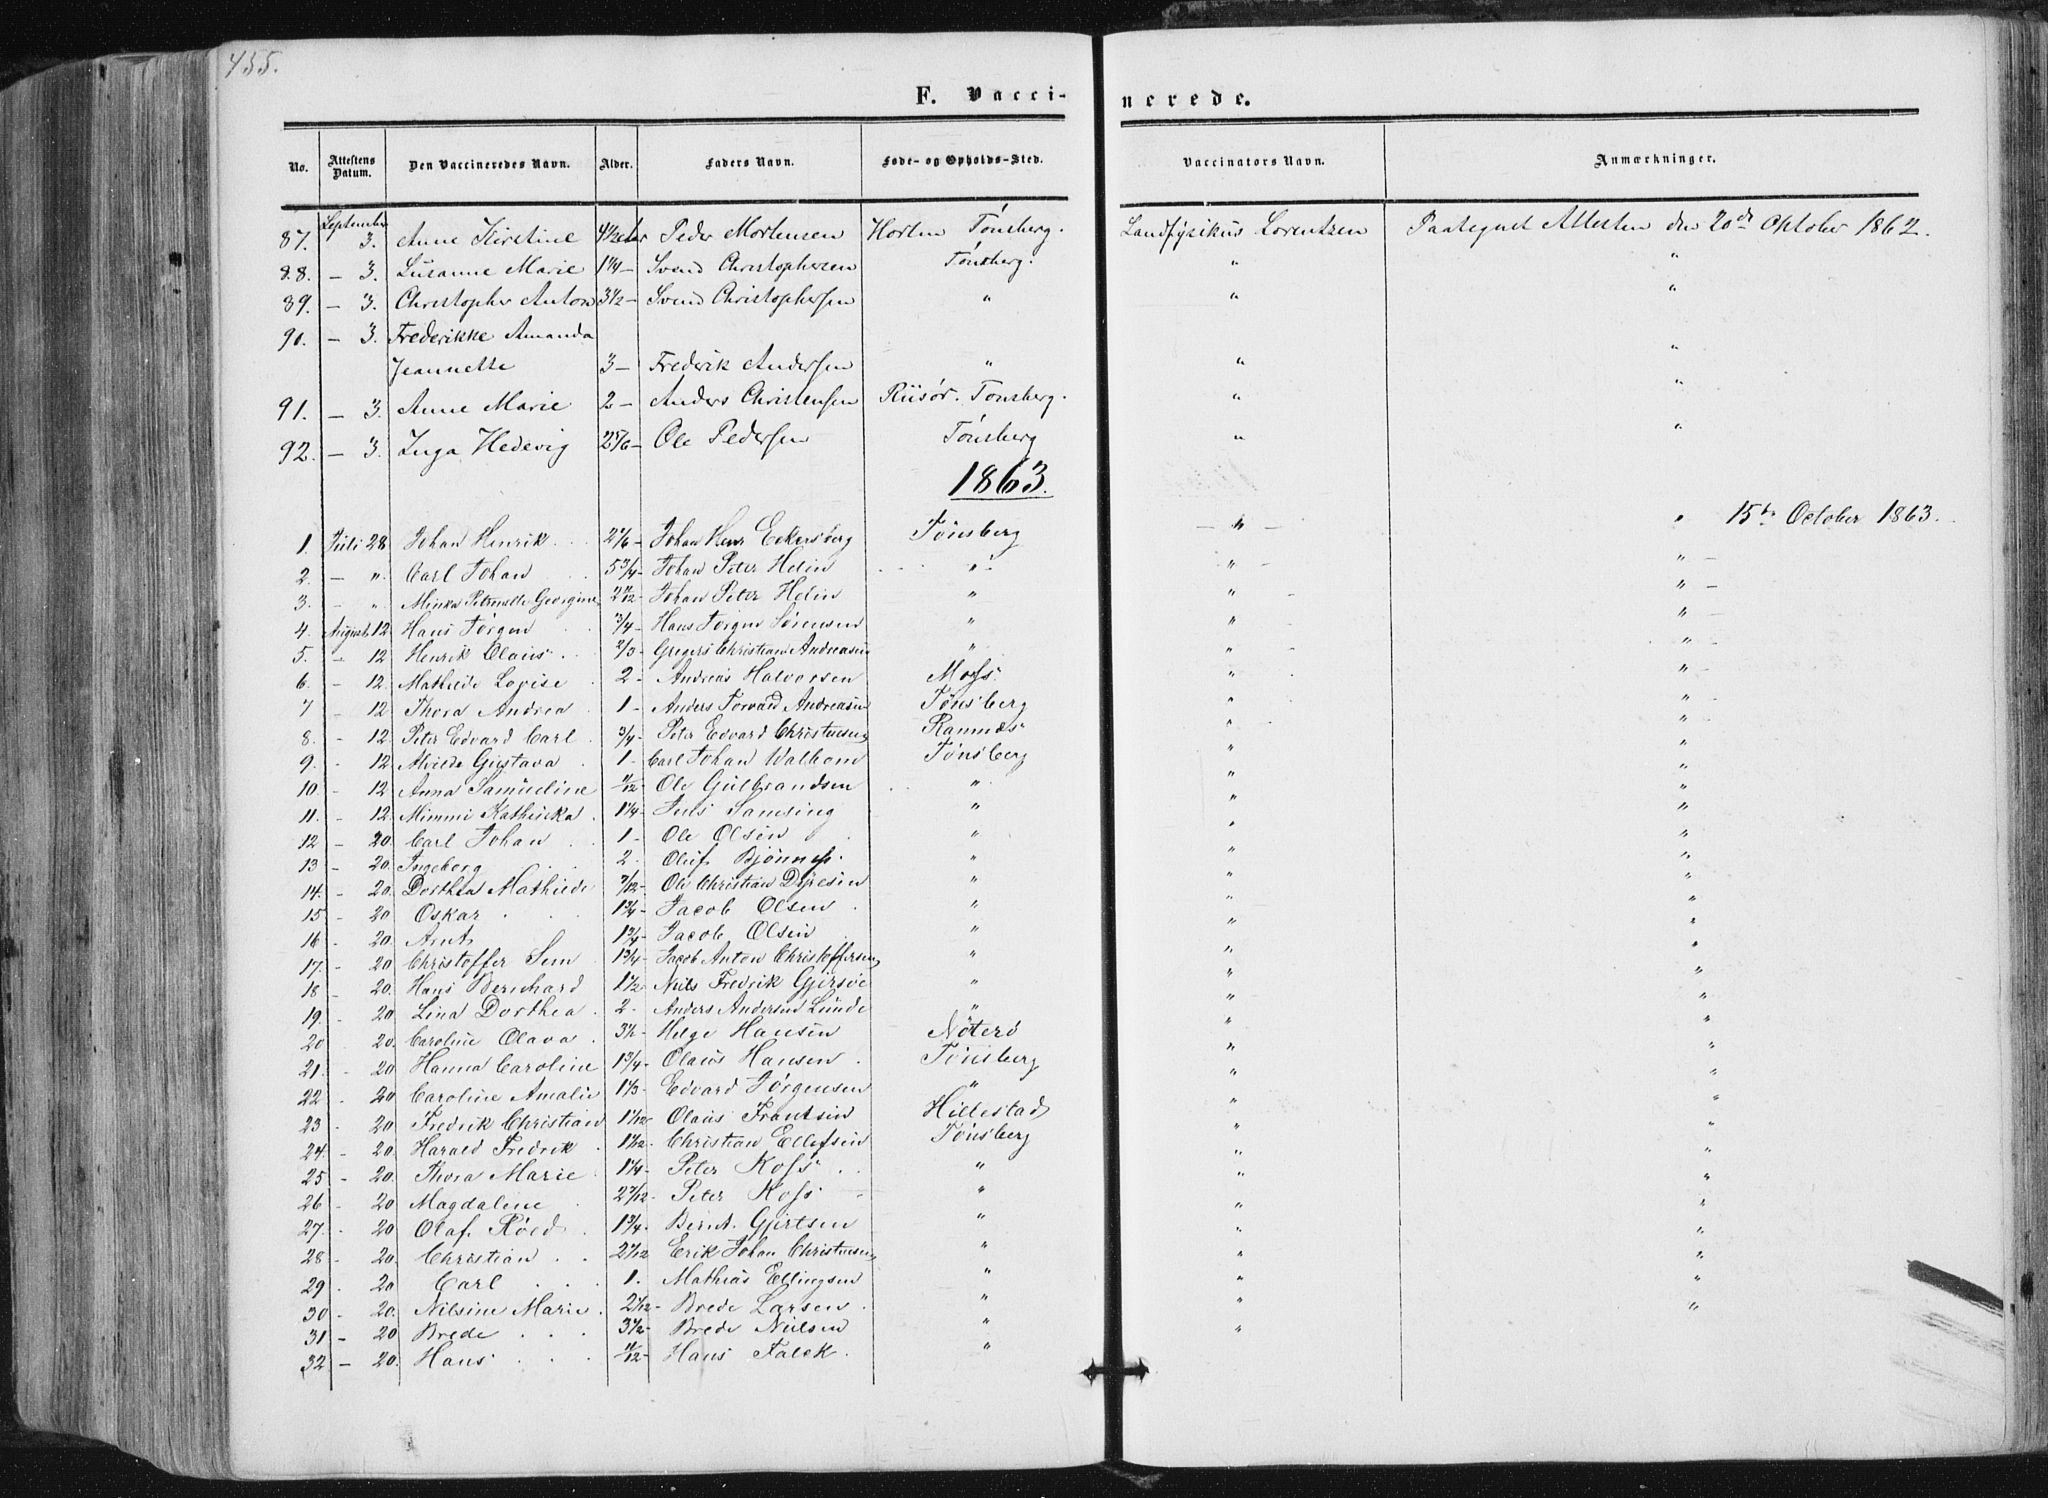 455.
F. Vaccinerede.
No. Attestens Datum. Den Vaccineredes Navn. Alder. Faders Navn. Føde- og Opholds-Sted. Vaccinators Navn. Anmærkninger.
87. September 3. Anne Kirstine 4 1/2 Aar Peder Mortensen Horten Tönsberg. Landfysikus Lorentzen Paategnet Attesten den 20de Oktober 1862.
88. – 3. Susanne Marie 1 1/4 – Svend Christophersen Tönsberg. " "
89. – 3. Christopher Anton 3 1/2 – Svend Christophersen " " "
90. – 3. Frederikke Amanda
Jeannette 3 – Fredrik Andersen " " "
91. – 3. Anne Marie 2 – Anders Christensen Riisör. Tonsberg. " "
92. – 3. Inga Hedevig 2 5/6 – Ole Pedersen Tönsberg " "
1863.
1. Juli 28 Johan Henrik Johan Henr Eckersberg Tönsberg – " – " 15de October 1863.
2. – " Carl Johan 5 3/4 – Johan Peter Helin " " " –
3. – " Minka Petrnelle Georgine Johan Peter Helin " " " –
4. August 12 Hans Jörgen 3/4 – Hans Jörgen Sörensen " " " –
5. – 12 Henrik Olaus 2/3 – Gregers Christian Andreasen " " " –
6. – 12. Mathilde Lovise 2 – Andreas Halvorsen Moss. " "
7 – 12 Thora Andrea 1 – Anders Torvard Andreasen Tönsberg " "
8. – 12. Peter Edvard Carl 3/4 – Peter Edvard Christensen Ramnæs " "
9. – 12 Alvilde Gustava 1 – Carl Johan Walbom Tönsberg " "
10. – 12 Anna Samueline Ole Gulbrandsen " " "
11. – 12. Mimmi Kathinka 1 1/4 – Juls Samsing " " "
12 – 20. Carl Johan 1 – Ole Olsen " " "
13 – 20. Ingeborg 2. Oluf Bjönness. " " "
14. – 20. Dorthea Mathilde Ole Christian Dyresen " " "
15 – 20 Oskar 1 3/4 – Jacob Olsen " " "
16 – 20. Arnt 1 3/4 – Jacob Olsen " " "
17. – 20 Christoffer Sem 1 3/4 – Jacob Anton Christoffersen " " "
18 – 20. Hans Bernhard 1 1/2 Niels Fredrik Gjersöe " " "
19. – 20 Lina Dorthea 2 – Anders Andersen Lunde " " "
20 20. Caroline Olava 3 1/2 – Helge Hansen Nöterö " "
21. – 20 Hanna Caroline 1 3/4 – Olaus Hansen Tönsberg " "
22 – 20 Caroline Amalie 1 1/3 – Edvard Jörgensen " " "
23 – 20 Fredrik Christian Olaus Frantsen Hillestad " "
24. – 20. Harald Fredrik Christian Ellefsen Tönsberg " "
25 – 20. Thora Marie 1 1/4 – Peter Koss " " "
26 – 20 Magdaline 2 7/12 – Peter Koss " " "
27. – 20 Olaf Röed 1 3/4 – Bernt Gjertsen " " "
28 – 20. Christian Erik Johan Christensen " " "
29 – 20 Carl 1. Mathias Ellingsen " " "
30 – 20. Nilsine Marie Brede Larsen " " "
31 – 20 Brede 3 1/2 – Brede Nielsen " "
32 – 20. Hans Hans Falck. "